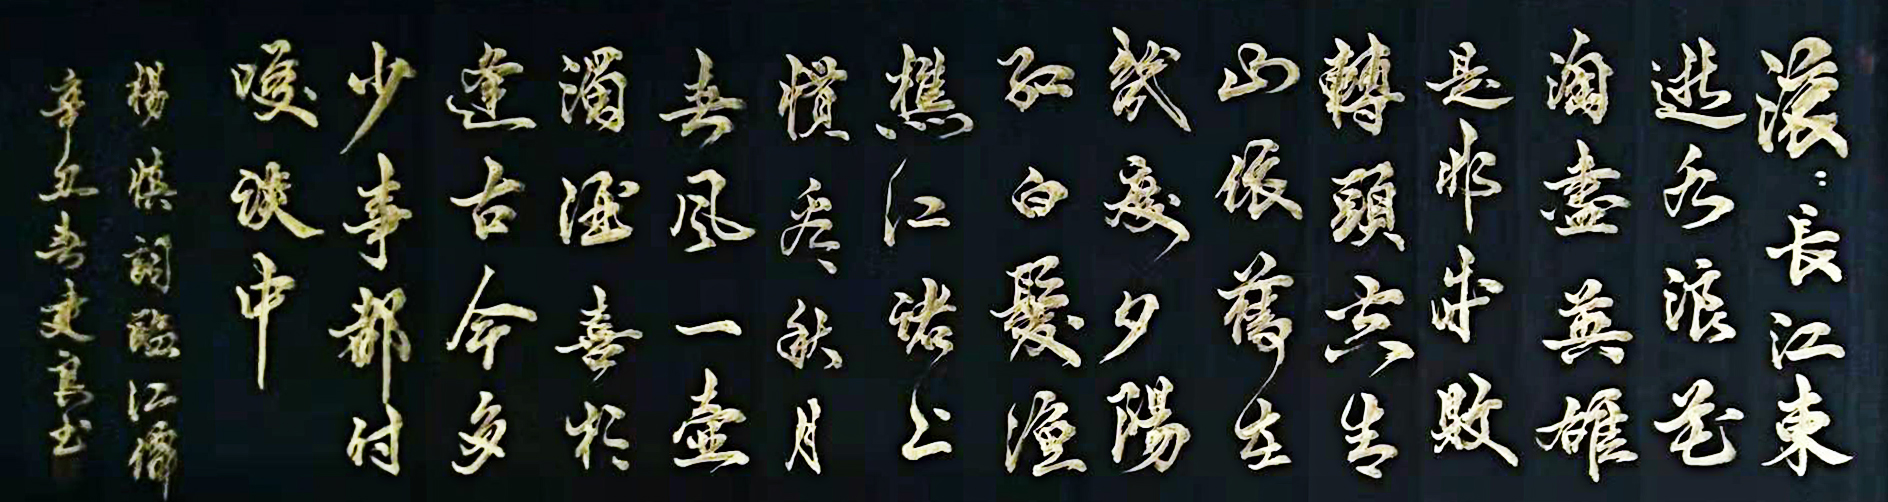 滚々長江東
逝水浪花
淘盡英雄
是非成敗
轉頭空青
山依舊在
幾度夕陽
紅白髮漁
樵江渚上
慣看秋月
春風一壺
濁酒喜相
逢古今多
少事都付
笑談中
楊慎詞臨江僊
辛丑春建书